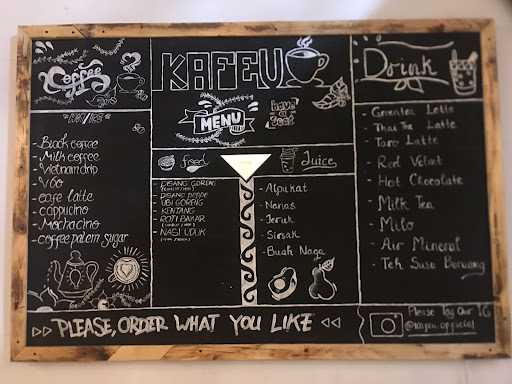 Coffee
HOT/ICE
- Black coffee
- Milk coffee
- Vietnam drip
- V60
- cafe latte
- cappucino
- Mochacino
- coffee palem sugar
KAFEU
MENU
have a seat
food
- PISANG GORENG
- UBI GORENG
- KENTANG
- ROTI BAKAR
- NASI UDUK
Juice
- Alpukat
- Nanas
- Jeruk
- Sirsak
- Buah Naga
Drink
- Greentea Latte
- Thai Tea Latte
- Taro Latte
- Red Velvet
- Hot Chocolate
- Milk Tea
- Milo
- Air Mineral
- Teh Susu Beruang
PLEASE, ORDER WHAT YOU LIKE
Please Tag Our IG